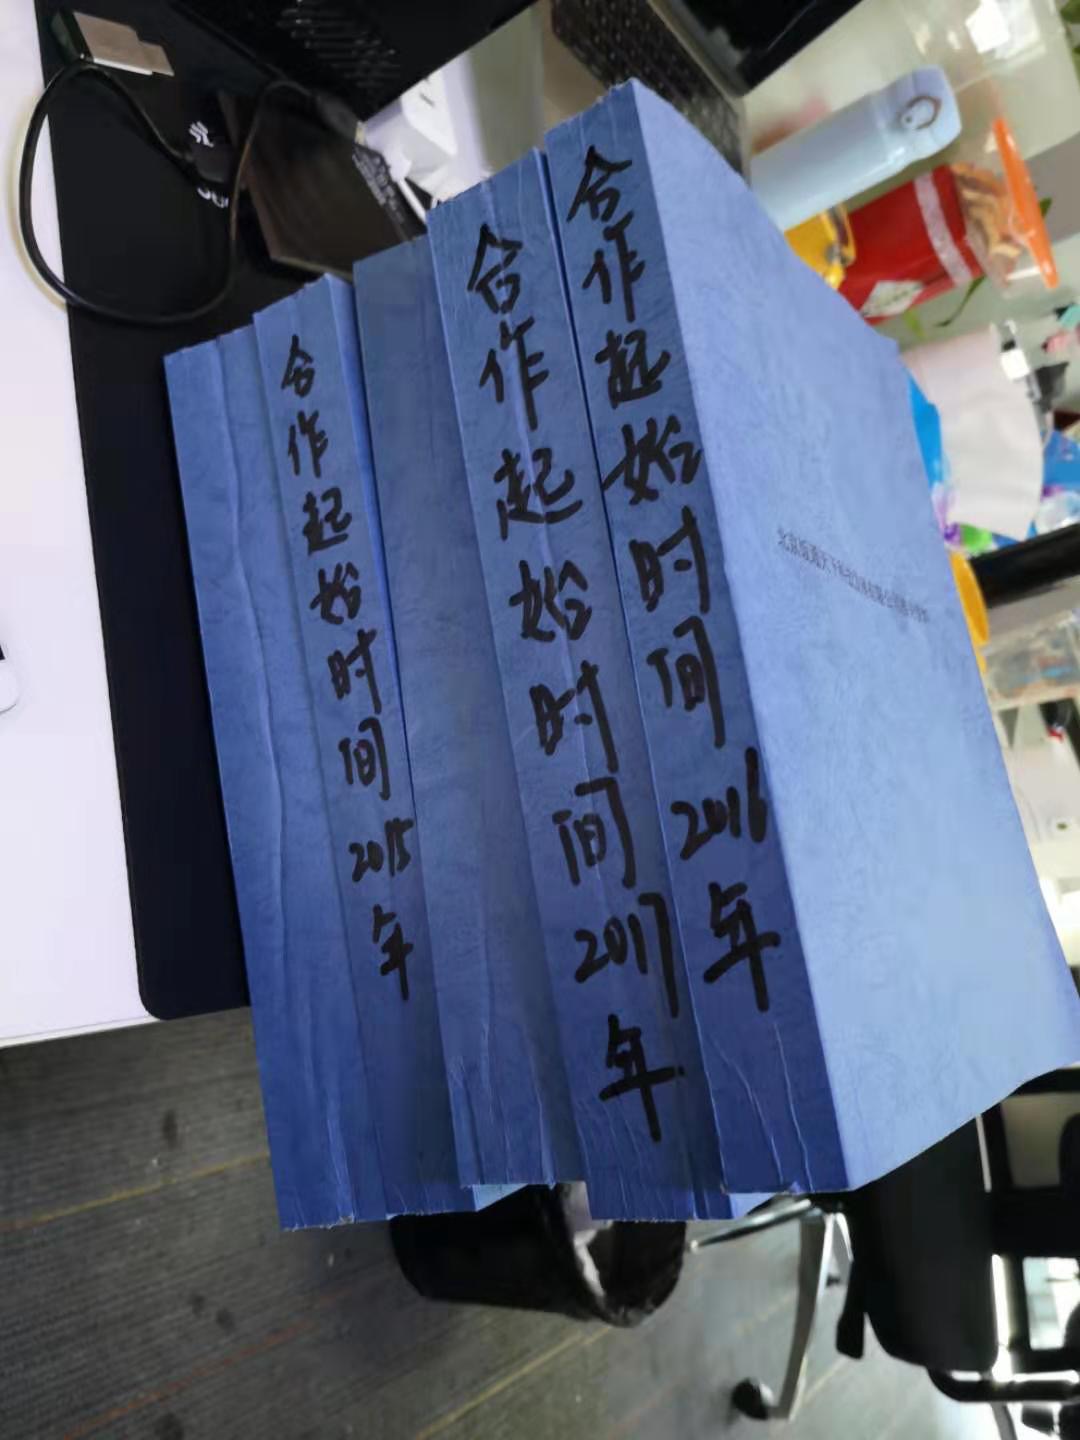 合作起始时间2015年
合作起始时间2017年
合作起始时间2016年